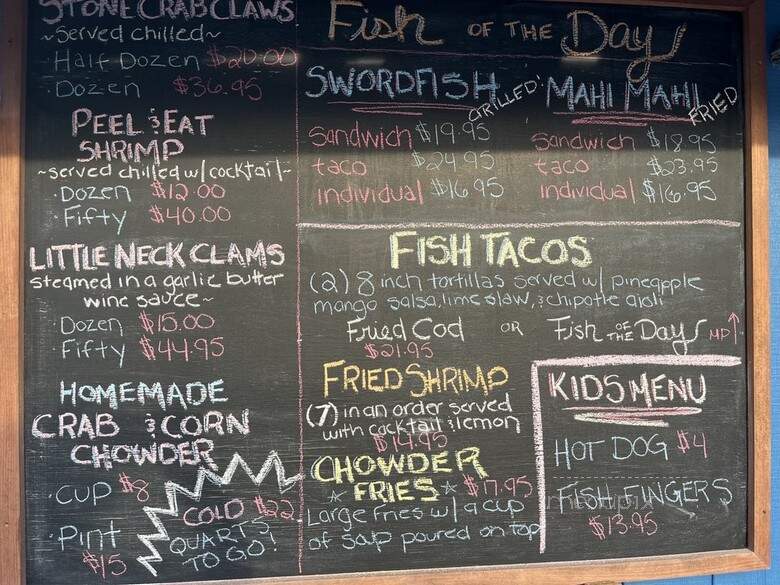 STONE CRAB CLAWS
~Served chilled~
Half Dozen $20.00
· Dozen $36.95
PEEL & EAT
SHRIMP
~served chilled w/ cocktail~
· Dozen $12.00
· Fifty $40.00
LITTLE NECK CLAMS
steamed in a garlic butter
wine sauce~
· Dozen $15.00
· Fifty $44.95
HOMEMADE
CRAB & CORN
CHOWDER
· CUP $8
· Pint $15
COLD $22
QUARTS
TO GO!
Fish OF THE Day
SWORDFISH GRILLED
Sandwich $19.95
taco $24.95
individual $16.95
MAHI MAHI FRIED
Sandwich $18.95
taco $23.95
individual $16.95
FISH TACOS
(2) 8 inch tortillas served w/ pineapple
mango salsa, lime slaw, & chipotle aioli
Fried Cod OR Fish OF THE Day MP
$21.95
FRIED SHRIMP
(7) in an order served
with cocktail & lemon
$14.95
CHOWDER
FRIES $17.95
Large fries w/ a cup
of soup poured on top
KIDS MENU
HOT DOG $4
FISH FINGERS
$13.95